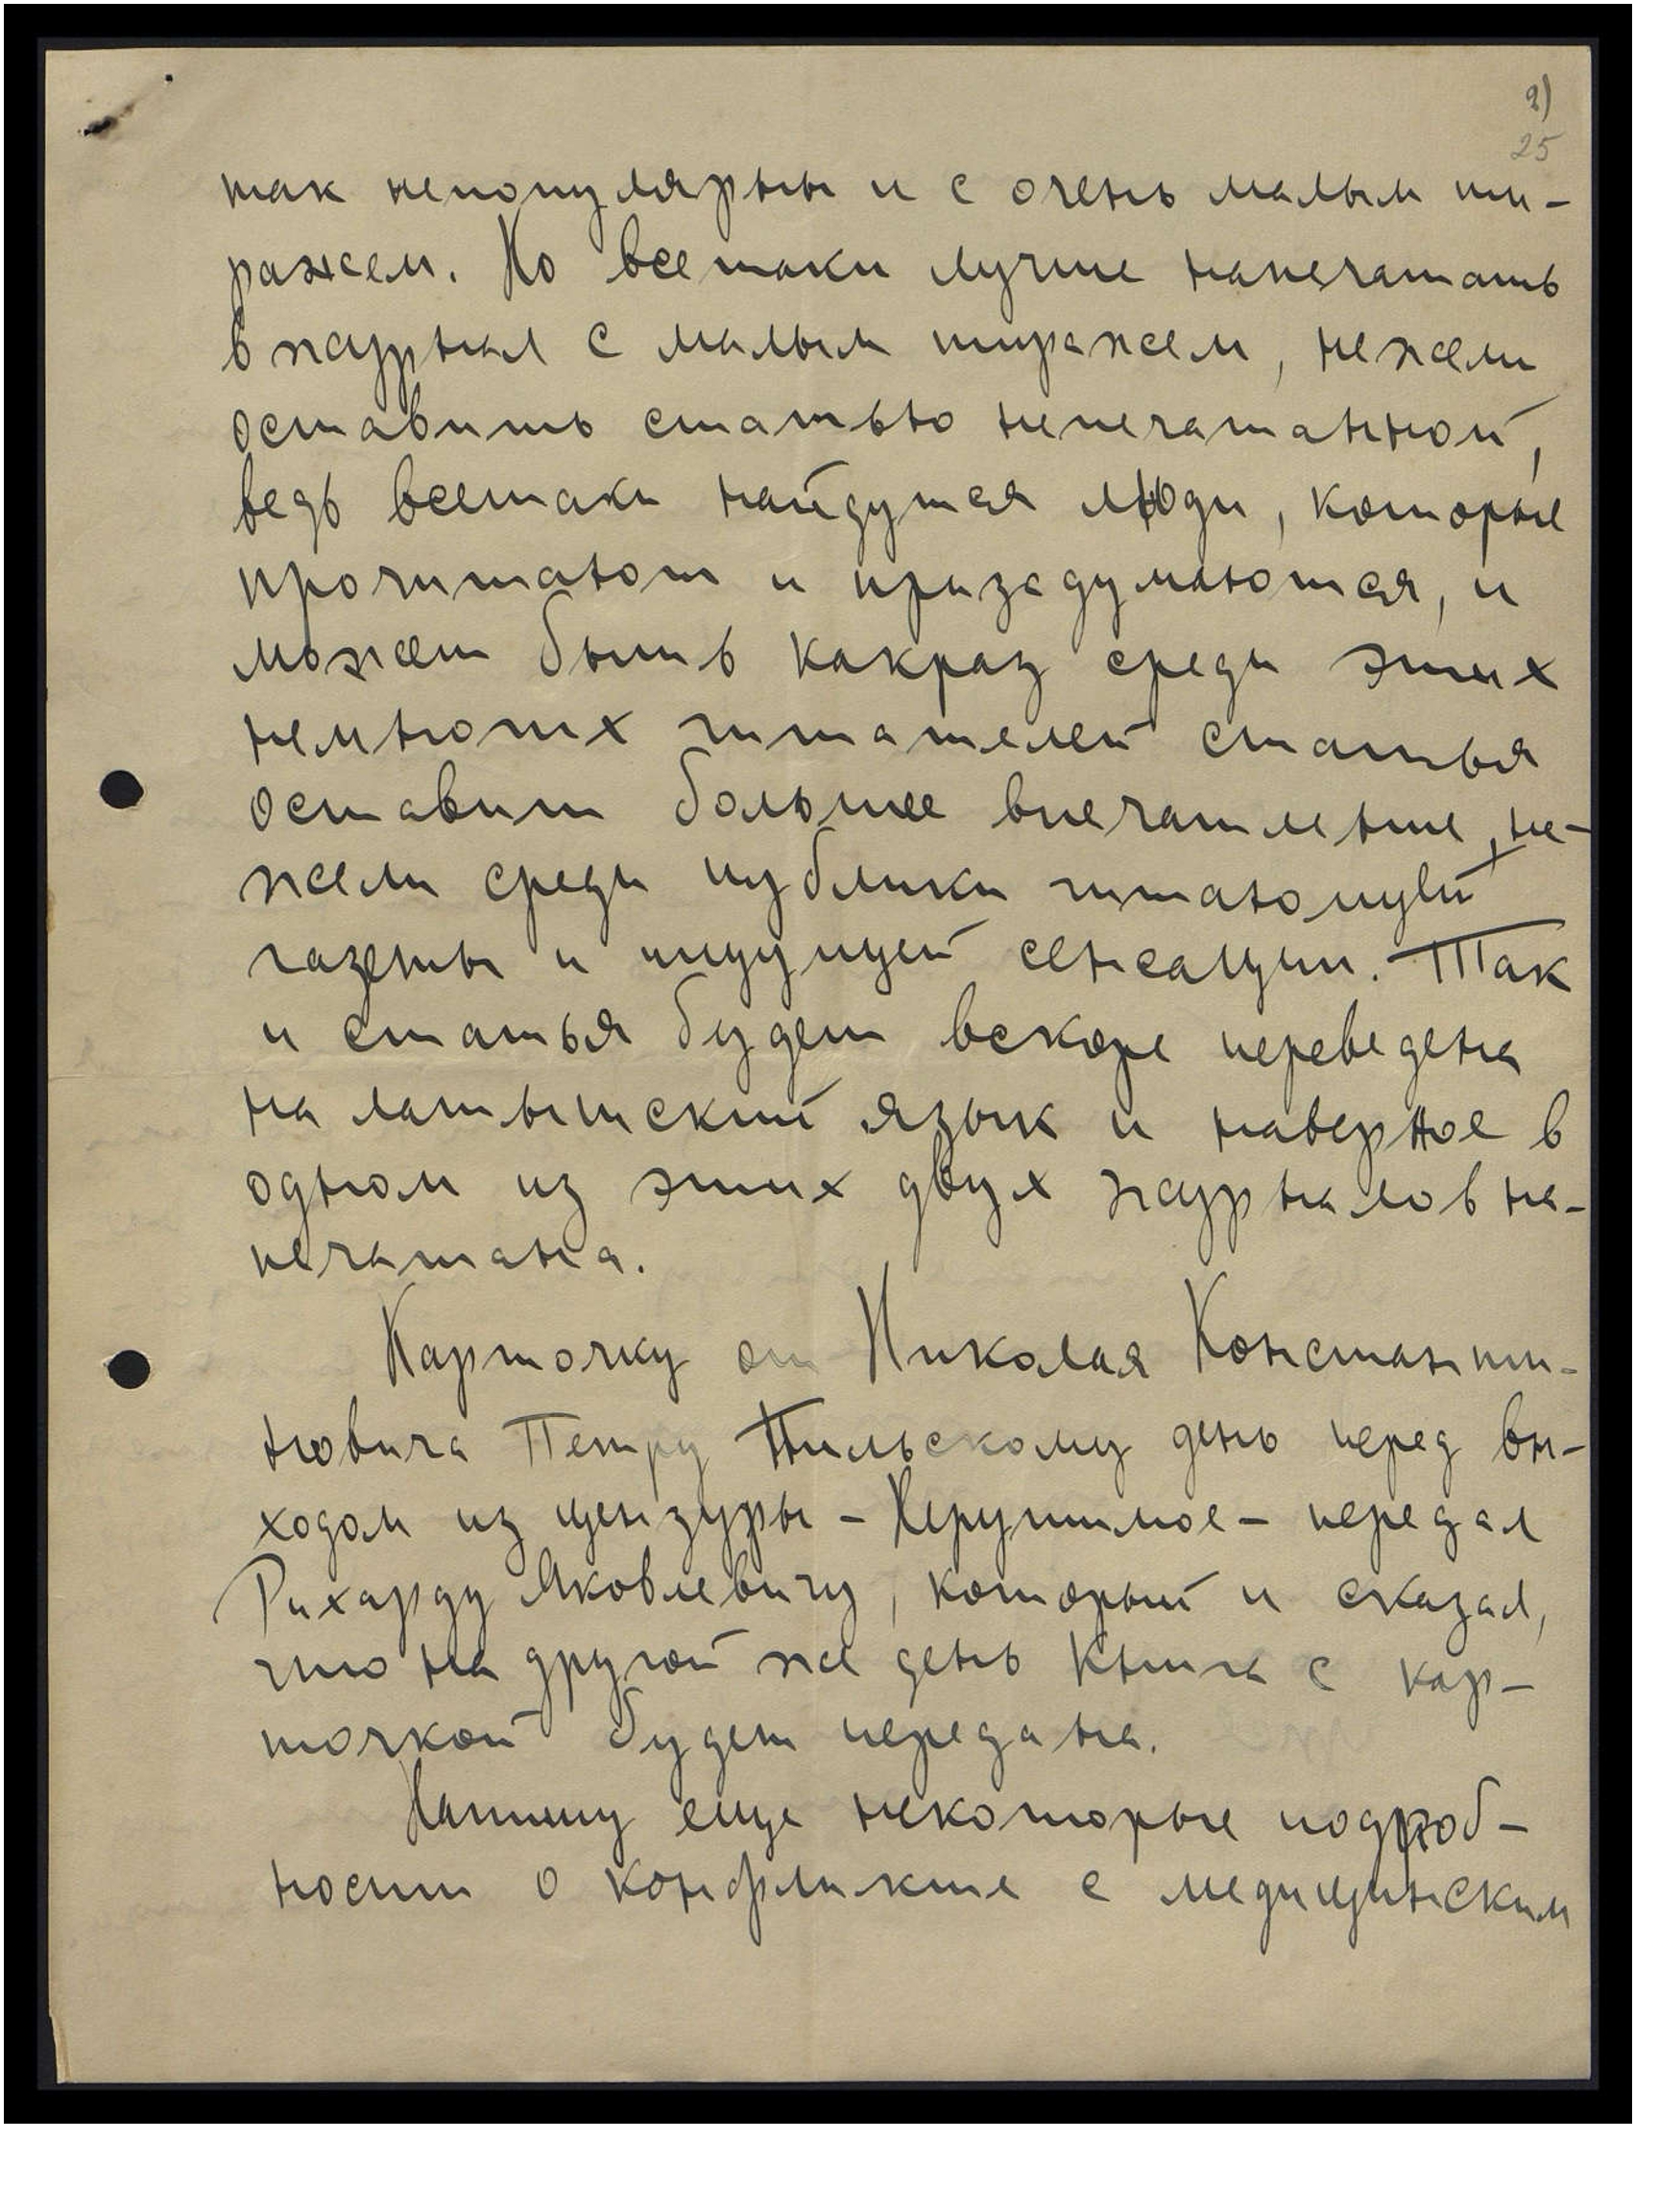 2)
25
так непопулярны и с очень малым ти-
ражем. Но всетаки лучше напечатать
в журнал с малым тиражем, нежели
оставить статью непечатанной,
ведь всетаки найдутся люди, которые
прочитают и призадумаются, и
может быть какраз среди этих
немногих читателей статья
оставит большее впечатление, не-
жели среди публики читающей
газеты и ищущей сенсации. Так
и статья будет вскоре переведена
на латышский язык и наверное в
одном из этих двух журналов на-
печатана.
Карточку от Николая Константи-
новича Петру Пильскому день перед вы-
ходом из цензуры – Нерушимое – передал
Рихарду Яковлевичу, который и сказал,
что на другой же день книга с кар-
точкой будет передана.
Напишу еще некоторые подроб-
ности о конфликте с медицинским